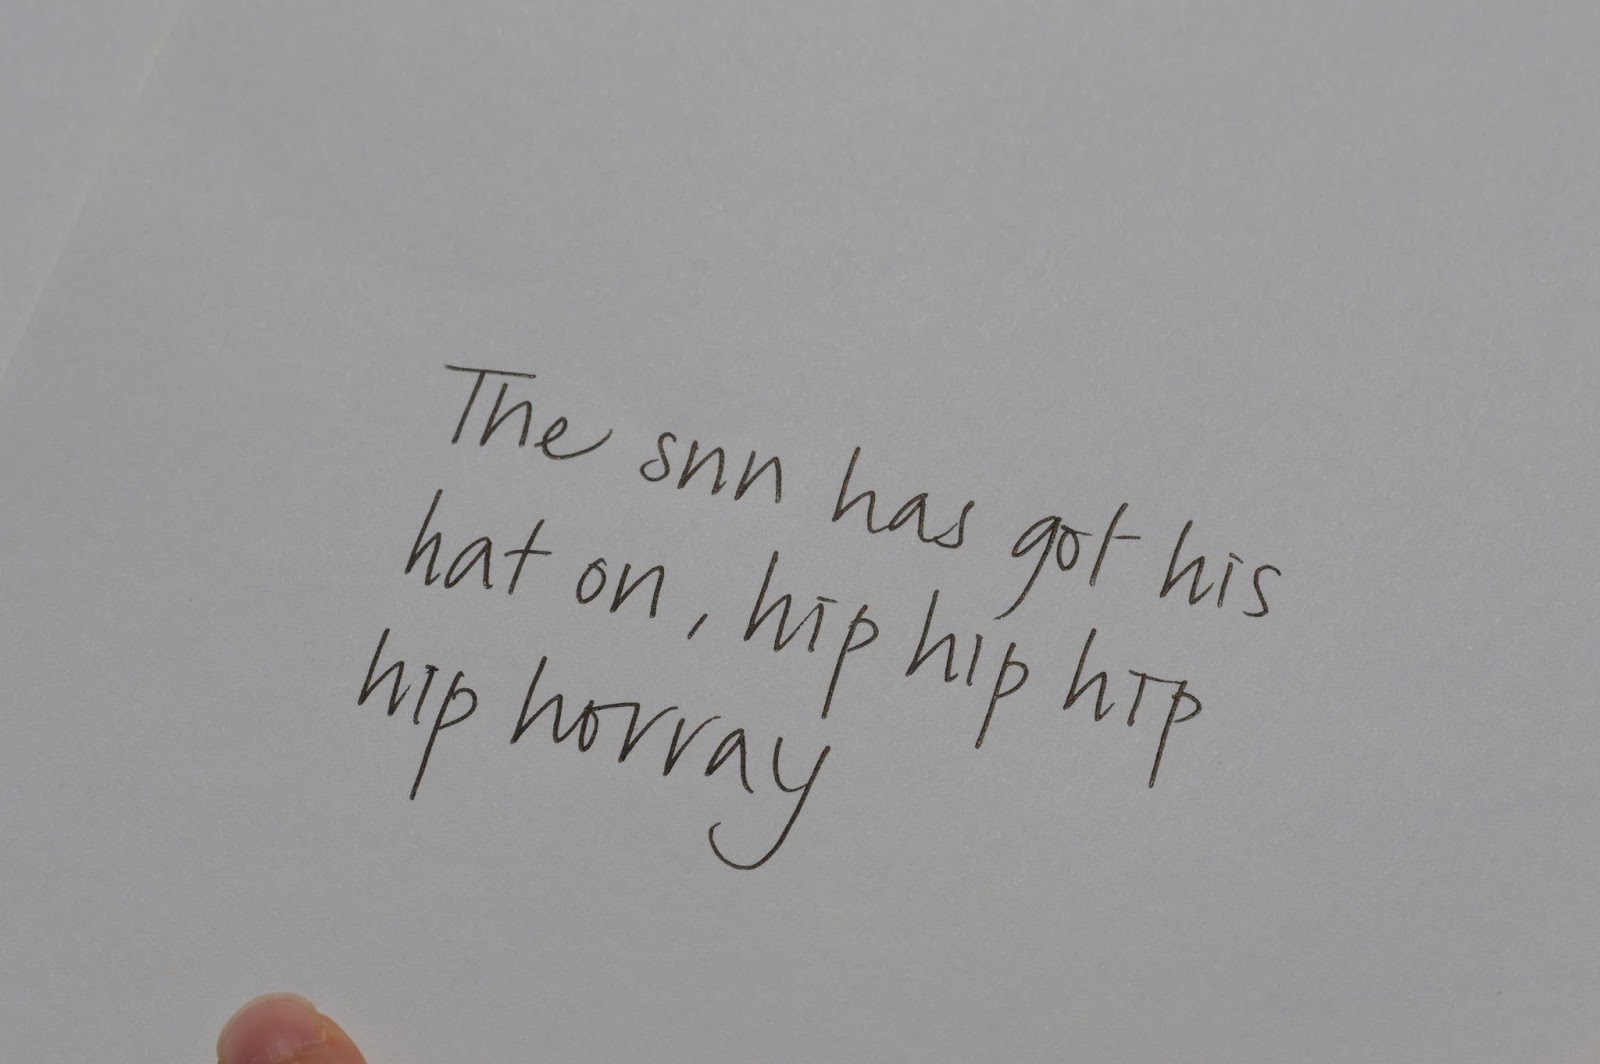 The snn has got his
hat on, hip hip hip
hip horray